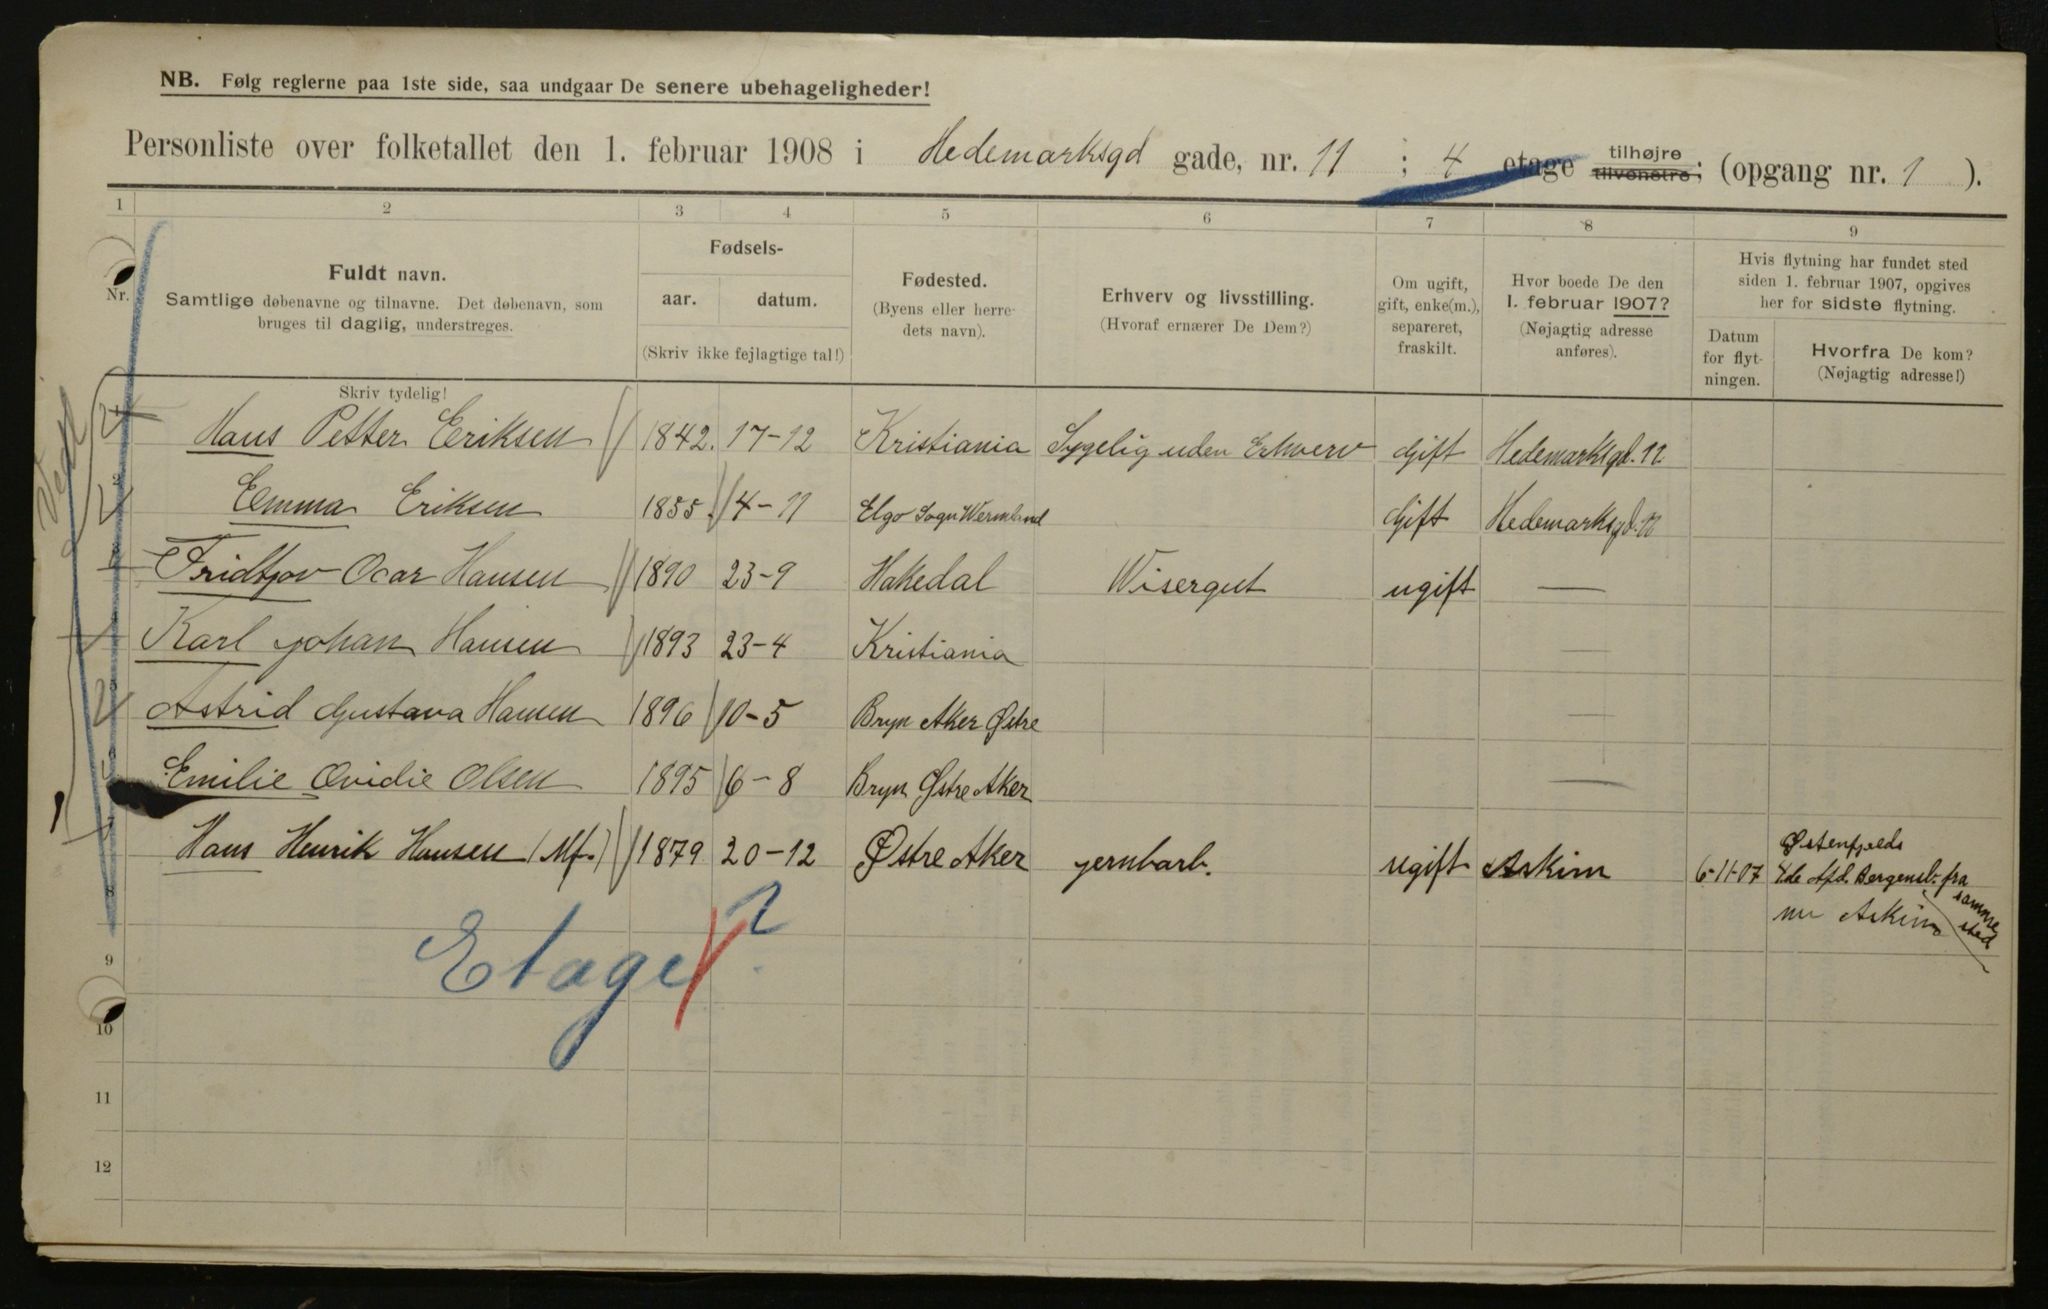 NB. Følg reglerne paa 1ste side, saa undgaar De senere ubehageligheder!
Personliste over folketallet den 1. februar 1908 i Hedemarksgd gade, nr. 11 ; 4 etage tilhøjre tilvenstre; (opgang nr. 1 ).
1 2 3 4 5 6 7 8 9
Nr.
Fuldt navn.
Samtlige døbenavne og tilnavne. Det døbenavn, som
bruges til daglig, understreges.
Skriv tydelig!
Fødsels-
aar. datum.
(Skriv ikke fejlagtige tal!)
Fødested.
(Byens eller herre-
dets navn).
Erhverv og livsstilling.
(Hvoraf ernærer De Dem?)
Om ugift,
gift, enke(m.),
separeret,
fraskilt.
Hvor boede De den
1. februar 1907?
(Nøjagtig adresse
anføres).
Hvis flytning har fundet sted
siden 1. februar 1907, opgives
her for sidste flytning.
Datum
for flyt-
ningen.
Hvorfra De kom?
(Nøjagtig adresse!)
Hans Petter Eriksen 1842. 17-12 Kristiania Sygelig uden Erhverv Gift Hedemarksgd. 11.
Emma Eriksen 1855. 4-11 Elgo Sogn Wermland Gift Hedemarksgd. 11
Fridtjov Ocar Hansen 1890 23-9 Hakedal Wisergut ugift —
Karl Johan Hansen 1893 23-4 Kristiania —
Astrid Gustava Hansen 1896 10-5 Bryn Aker Østre —
Emilie Ovidie Olsen 1895 6-8 Bryn Østre Aker —
Hans Henrik Hansen (Mf.) 1879 20-12 Østre Aker jernbarb. ugift Askim 6-11-07 Østenfjelds
4de Afd. Bergensb. fra
samme
sted
nu Askim
8
9
Etage ?
10
11
12